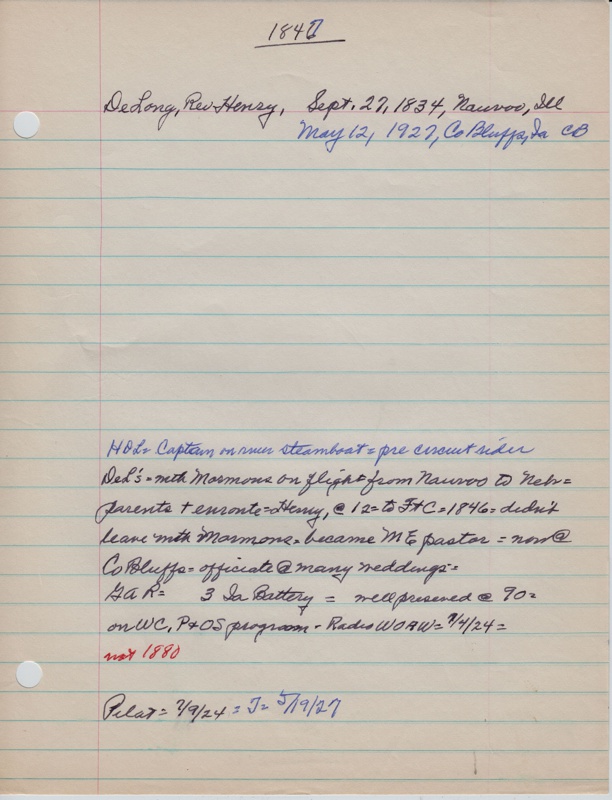 1847
DeLong, Rev Henry, Sept. 27, 1834, Nauvoo, Ill
May 12, 1927, Co Bluffs, Ia CB
HDL= Captain on river steamboat = pre circuit rider
DeL's = with Mormons on flight from Nauvoo to Neb =
parents + enroute = Henry, @ 12 = to F+C = 1846 = didn't
leave with Mormons = became ME pastor = now @
Co Bluffs = officiate @ many weddings =
GAR = 3 Ia Battery = well preserved @ 90 =
on WC, P+OS program - Radio WOAW = 7/4/24 =
not 1880
Pilat = 7/9/24 = T = 5/19/27